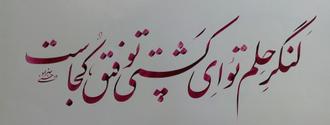 لنگر حلم تو ای کشتی توفیق کجاست